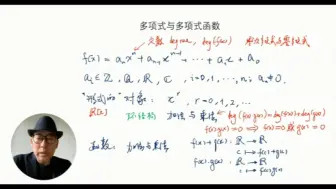 多项式与多项式函数
次数 degree, deg(f(x))
f(x) = aₙxⁿ + aₙ₋₁xⁿ⁻¹ + ... + a₁x + a₀
aᵢ ∈ Z, Q, R, C, i=0,1,...,n; aₙ≠0.
"形式的" 对象: xʳ, r=0,1,2,...
R[x] 环结构 加法与乘法 deg(f(x)g(x))=deg(f(x))+deg(g(x))
f(x)g(x)=0 ⟹ f(x)=0 或 g(x)=0
函数: 加法与乘法 f(x)+g(x): R → R
c ↦ f(c)+g(c)
f(x)·g(x): R → R